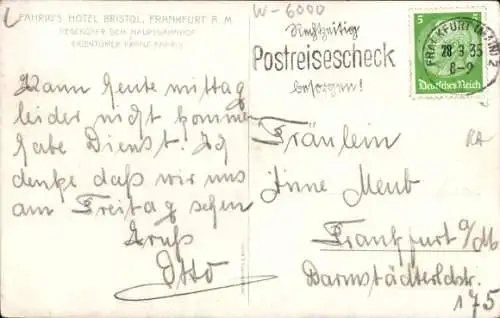 FAHRIG'S HOTEL BRISTOL, FRANKFURT A. M.
GEGENÜBER DEM HAUPTBAHNHOF
EIGENTÜMER FRANZ FAHRIG
Kann heute mittag
leider nicht kommen
habe Dienst. Ich
denke daß wir uns
am Freitag sehen
Gruß
Otto
W-6000
Rechtzeitig
Postreisescheck
besorgen!
FRANKFURT (MAIN) 2
28 3 35
8-9
5
Deutsches Reich
Fräulein
Änne Meub
Frankfurt a/M
Darmstädterldstr.
175